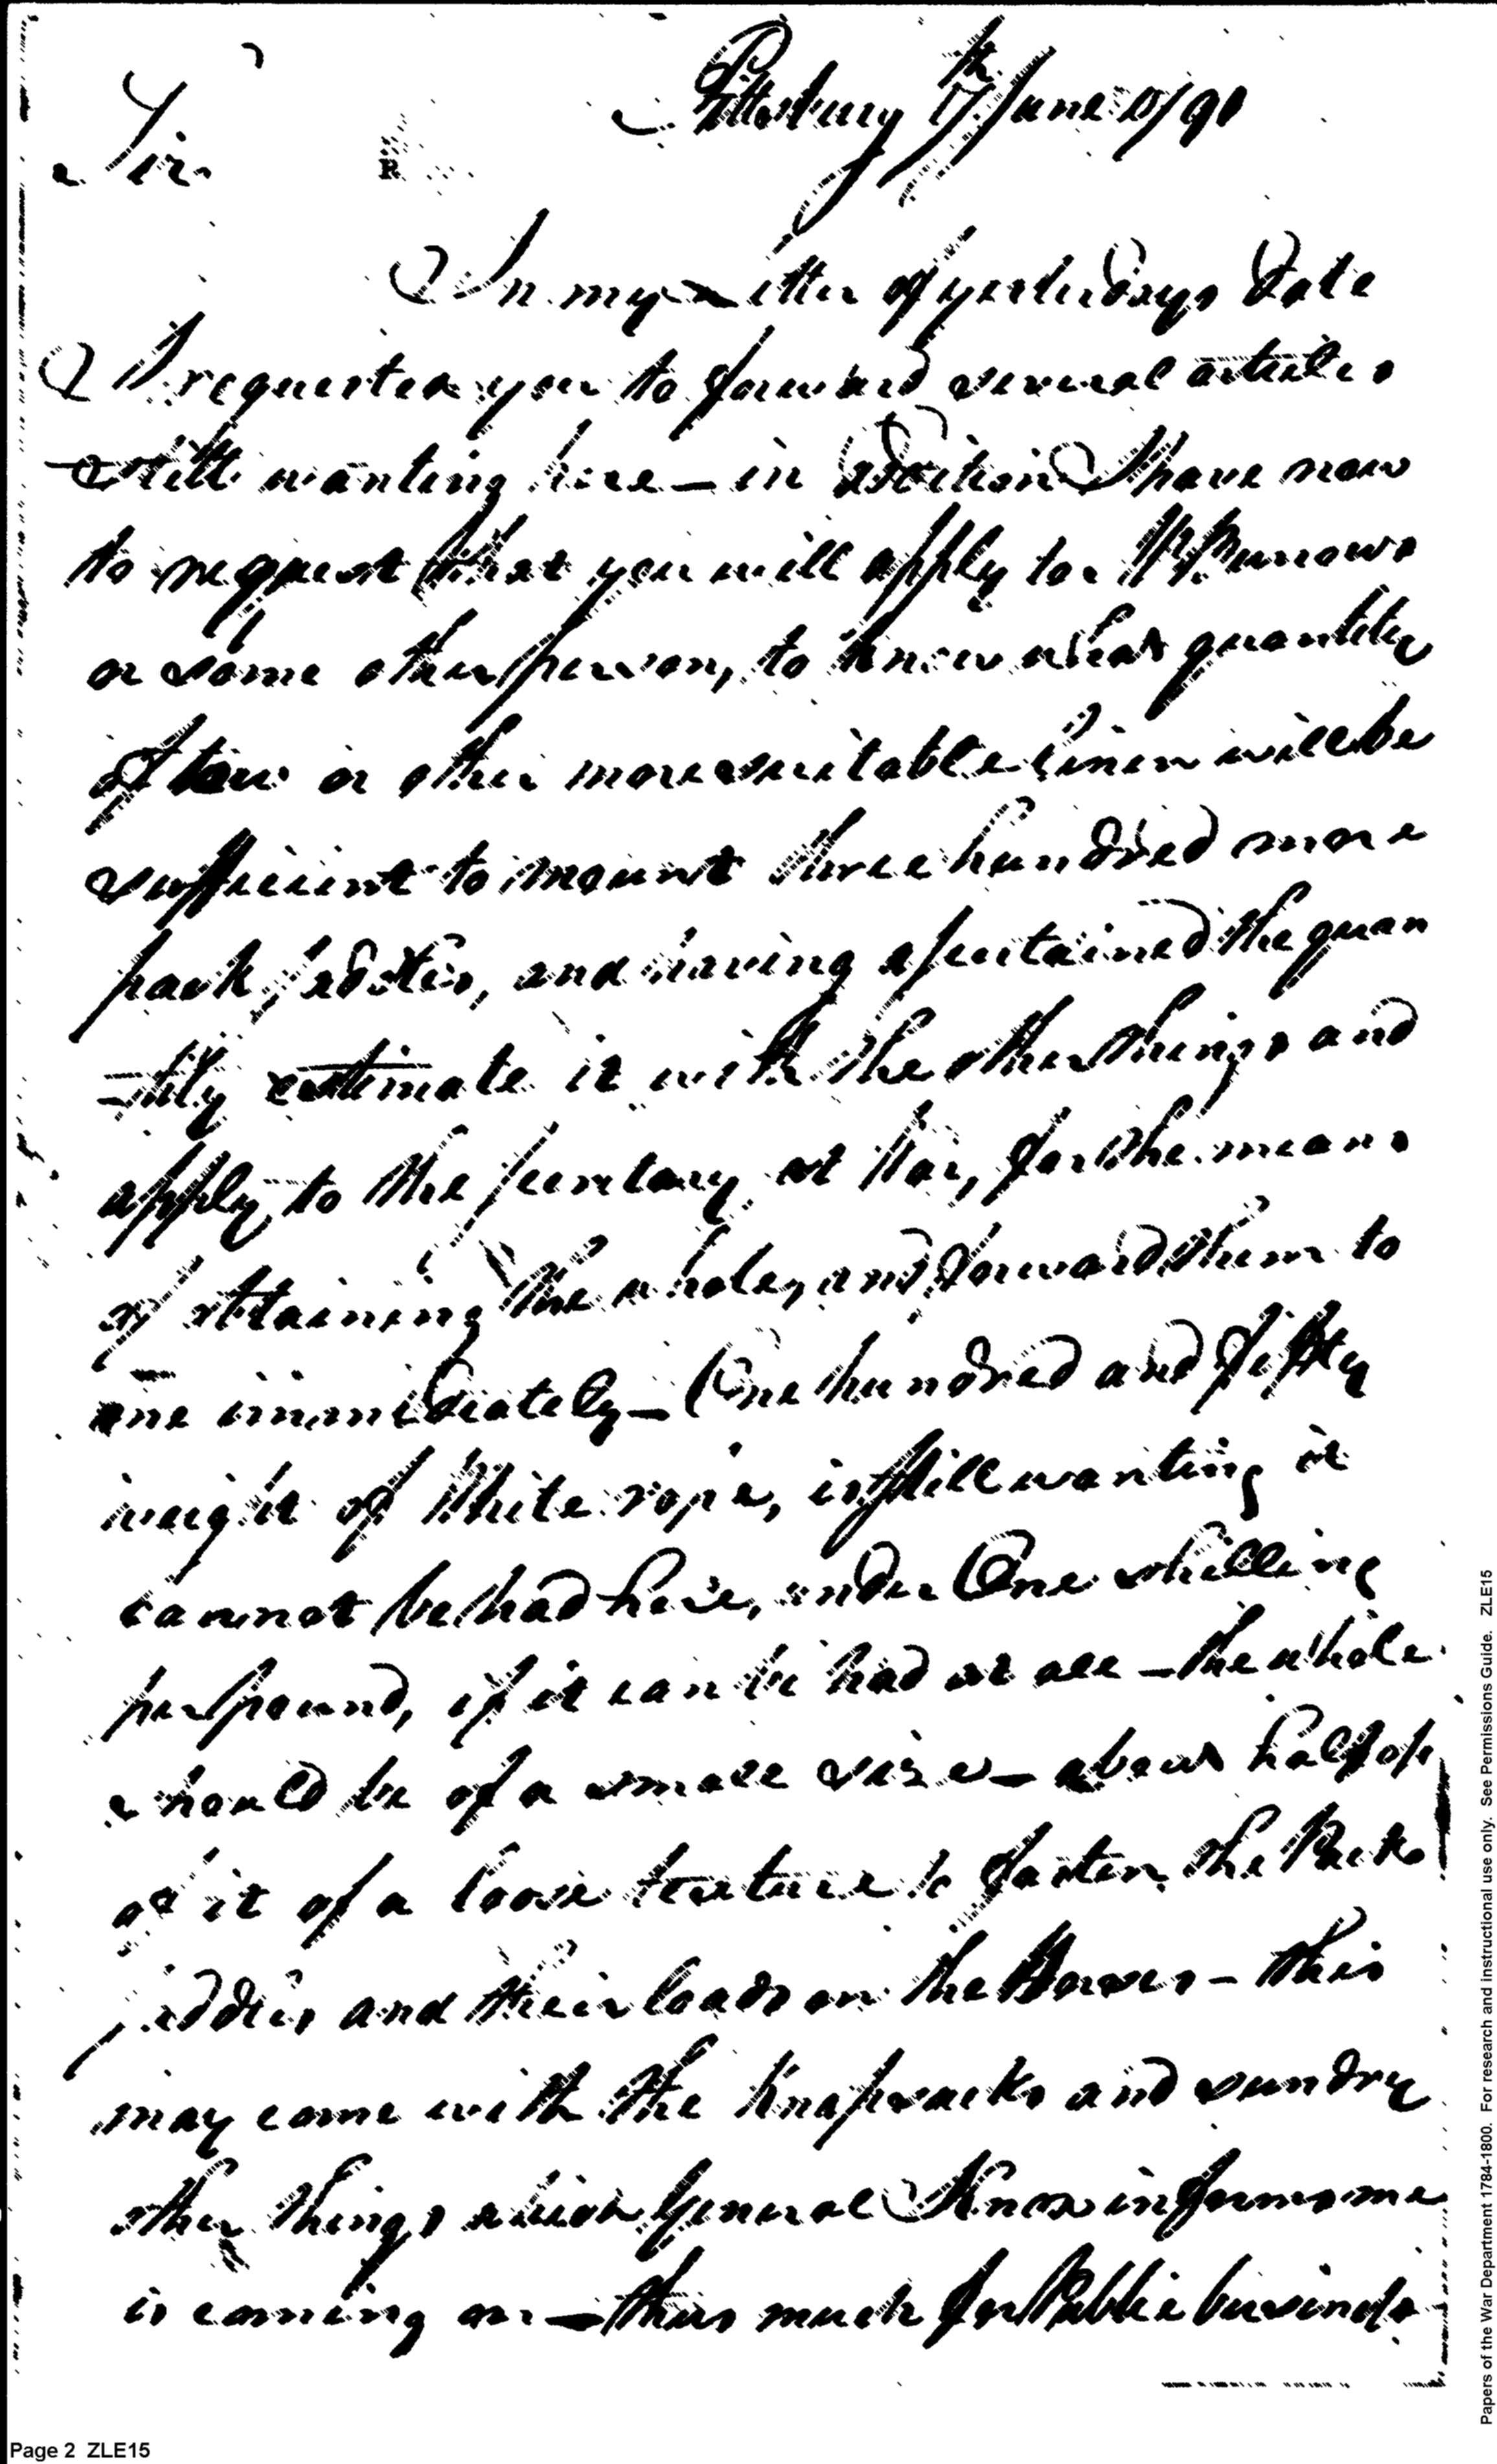 Pittsburg 17th June 1791
Sir
In my letter of yesterdays date
I requested you to forward several articles
still wanting here – in addition I have now
to request that you will apply to Mr Burrows
or some other person, to know what quantity
of tow or other more suitable linen will be
sufficient to mount three hundred more
pack saddles, and having ascertained the quan
-tity estimate it with the other things and
apply to the Secretary at War, for the means
of obtaining the whole, and forward them to
me immediately – One hundred and fifty
weight of White rope, is still wanting it
cannot be had here, under One shilling
per pound, if it can be had at all – the whole
should be of a small size – about half of
of it of a loose texture to fasten the Pack
saddles and their loads on the Horses – this
may come with the knapsacks and sundry
other things which General Knox informs me
is coming on – thus much for Public business
Papers of the War Department 1784-1800. For research and instructional use only. See Permissions Guide. ZLE15
Page 2 ZLE15